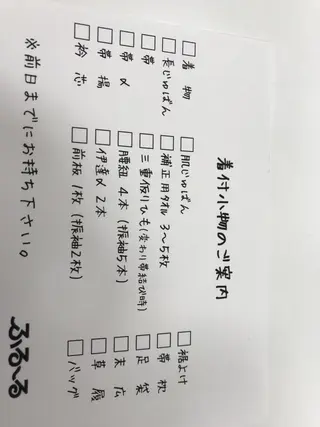 着付小物のご案内
□着物 □肌じゅばん □裾よけ
□長じゅばん □補正用タオル 3〜5枚 □帯枕
□帯 □三重仮りひも(変わり帯結び時) □足袋
□帯〆 □腰紐 4本(振袖5本) □末広
□帯揚 □伊達〆 2本 □草履
□衿芯 □前板 1枚(振袖2枚) □バッグ
※前日までにお持ち下さい。
ふる〜る